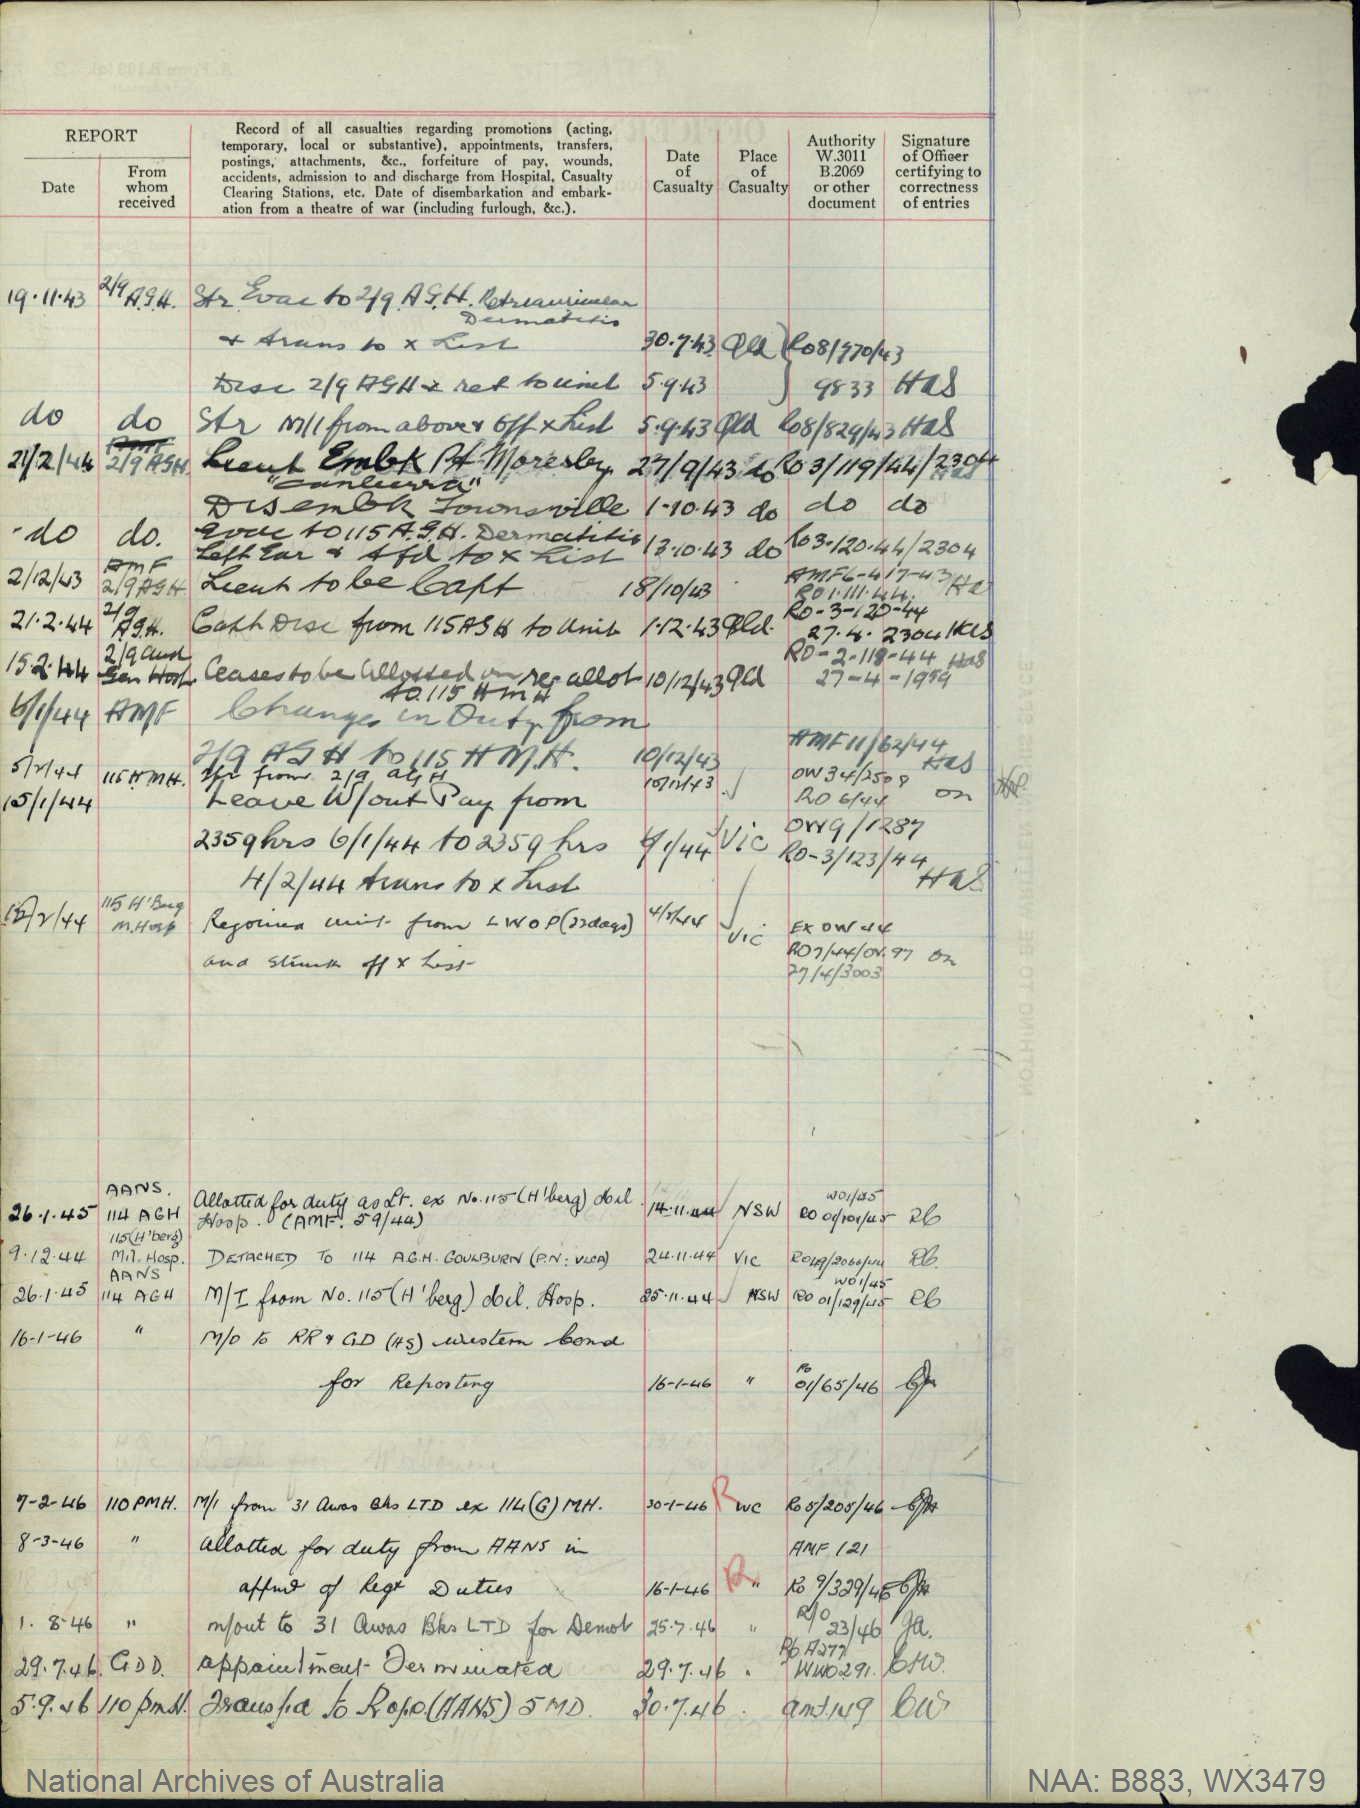 REPORT
Date
From whom received
Record of all casualties regarding promotions (acting,
temporary, local or substantive), appointments, transfers,
postings, attachments, &c., forfeiture of pay, wounds,
accidents, admission to and discharge from Hospital, Casualty
Clearing Stations, etc. Date of disembarkation and embark-
ation from a theatre of war (including furlough, &c.).
Date of Casualty
Place of Casualty
Authority W.3011 B.2069 or other document
Signature of Officer certifying to correctness of entries
19.11.43 2/9 A.G.H. Str Evac to 2/9 A.G.H. Retroauricular
Dermatitis
& trans to x List 30.7.43 Qld Ro8/770/43
Disc 2/9 AGH & ret to unit 5.9.43 9833 HaS
do do Str M/I from above & off x List 5.9.43 Qld Ro8/829/43 HaS
21/2/44 2/9 AGH. Lieut Embk Pt Moresby 27/9/43 do Ro 3/119/44/2304 HaS
"Canberra"
Disembk Townsville 1-10.43 do do do
-do do. Evac to 115 A.G.H. Dermatitis
Left Ear & tfd to x List 13.10.43 do Ro3.120.44/2304
2/12/43 AMF 2/9 AGH Lieut to be Capt 18/10/43 AMF6-417-43
RO 1.111.44.
21.2.44 2/9 A.G.H. Capt Disc from 115 AGH to Unit 1.12.43 Qld. RO-3-120-44
27.4. 2304 HaS
15.2.44 2/9 Aust Gen Hosp Ceases to be allotted on re-allot 10/12/43 Qld RO-2-118-44 HaS
to 115 HMH 27-4-1959
6/1/44 AMF Changes in Duty from
2/9 AGH to 115 HMH. 10/12/43 AMF 11/62/44 HaS
5/2/44 115 H.M.H. Tfr from 2/9 AGH 10/12/43 OW 34/2509
RO 6/44
15/1/44 Leave W/out Pay from
2359 hrs 6/1/44 to 2359 hrs 6/1/44 Vic OW9/1287
RO-3/123/44
4/2/44 trans to x List HaS
12/2/44 115 H'Berg M.Hosp Rejoined unit from LWOP (22days) 4/2/44 Vic EX OW 44
and struck off x List RO7/44/OW.97
27/4/3003
26.1.45 AANS. 114 AGH Allotted for duty as Lt. ex No.115 (H'berg) Mil 14.11.44 NSW WO1/45
Hosp. (AMF. 59/44) RO 01/101/45 Rb
9.12.44 115(H'berg) Mil. Hosp. DETACHED TO 114 A.G.H. GOULBURN (P.N: VLCA) 24.11.44 VIC Rb.
26.1.45 AANS 114 AGH M/I from No. 115 (H'berg) Mil. Hosp. 25.11.44 NSW WO1/45
RO 01/129/45 Rb
16-1-46 " M/O to RR & GD (HS) Western Comd
for Reporting 16-1-46 " Ro 01/65/46
7-2-46 110 PMH. M/I from 31 Awas Bks LTD ex 114 (G) MH. 30-1-46 R WC Ro 5/205/46
8-3-46 " Allotted for duty from AANS in AMF 121
appmt of Regt Duties 16-1-46 R " Ro 9/329/46
1. 8-46 " m/out to 31 Awas Bks LTD for Demob 25.7.46 " R/O 23/46
29.7.46. GDD. appointment Terminated 29.7.46 Ro A277
WW0291.
5.9.46 110 pm.H. Transfd to R of O. (AANS) 5 MD. 30.7.46 amf.149 CW
NOTHING TO BE WRITTEN IN THIS SPACE
National Archives of Australia
NAA: B883, WX3479